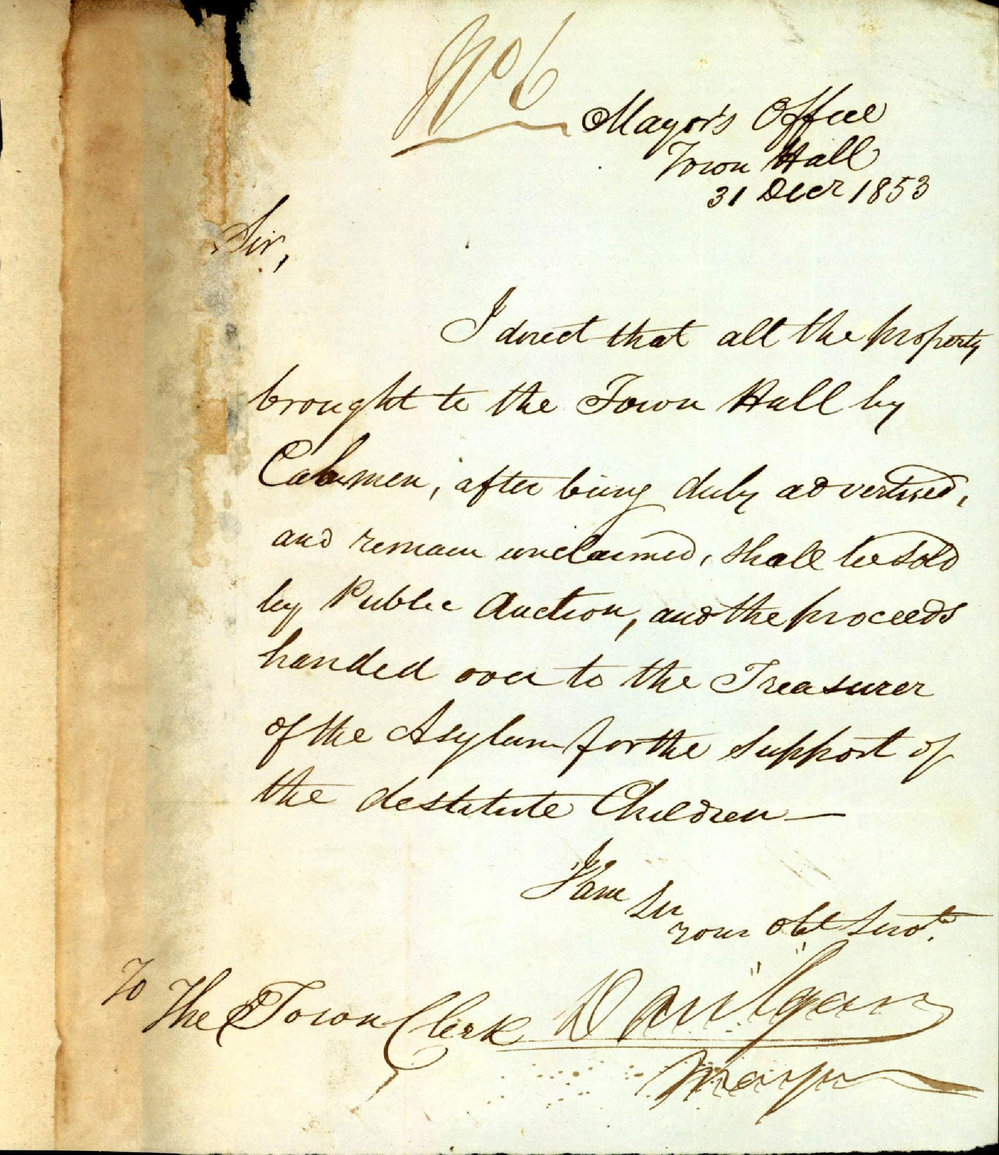 No 6
Mayor's Office
Town Hall
31 Decr 1853
Sir,
I direct that all the property
brought to the Town Hall by
Cabmen, after being duly advertised,
and remain unclaimed, shall be sold
by Public Auction, and the proceeds
handed over to the Treasurer
of the Asylum for the support of
the destitute Children—
I am Sir
your obt Servt.
To
The Town Clerk
Danl Egan
Mayor